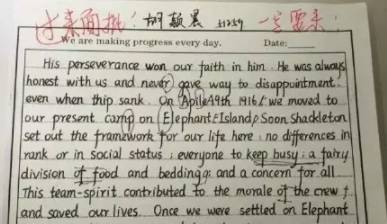 过来面批! 胡颖晨 51259 一定要来!
We are making progress every day. Date:
His perseverance won our faith in him. He was always
honest with us and never gave way to disappointment
even when ship sank. On Aplile 19th 1916, we moved to
our present camp on Elephant Island. Soon Shackleton
set out the framework for our life here: no differences in
rank or in social status; everyone to keep busy; a fairy
division of food and bedding; and a concern for all.
This team-spirit contributed to the morale of the crew
and saved our lives. Once we were settled on Elephant